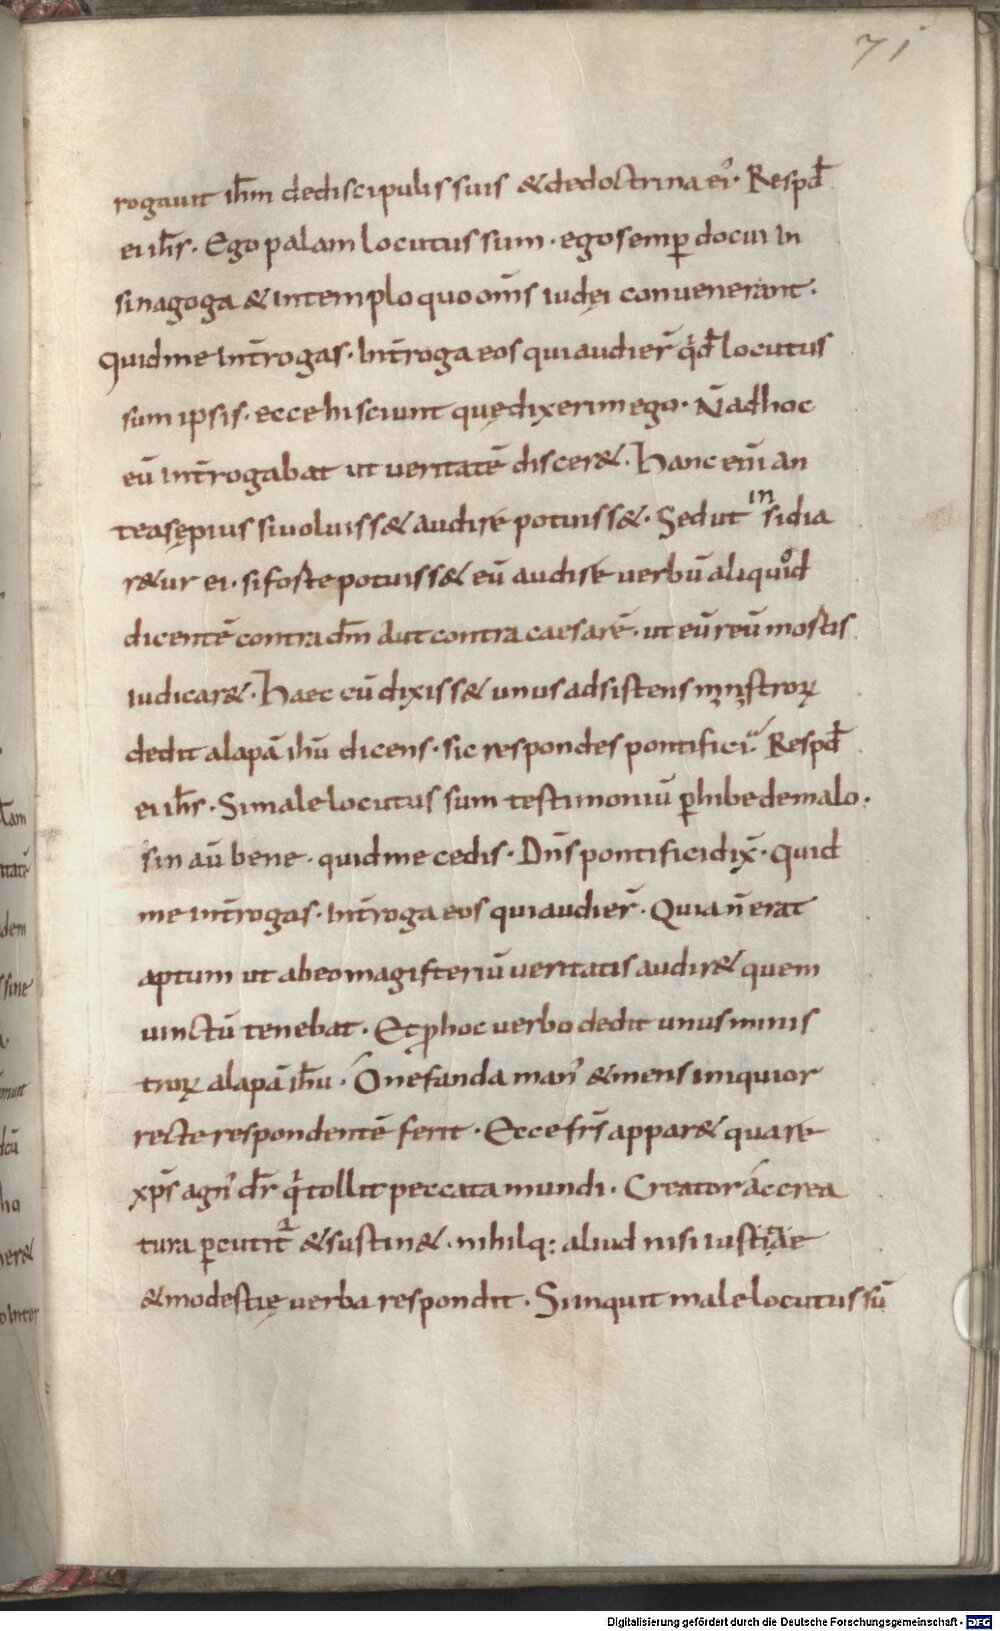 71
rogauit ih̅m de discipulis suis & de doctrina ei᾽. Resp̄d
ei ih̅s. Ego palam locutus sum. ego semp̱ docui in
sinagoga & in templo quo om̅s iudęi convenerant.
quid me int̅rogas. Int̅roga eos qui audier̅ q͛d locutus
sum ipsis. ecce hi sciunt quę dixerim ego. N̅ ad hoc
eū int̅rogabat ut veritatē discer&. Hanc eni̅ an
tea sępius si voluiss& audire potuiss&. Sed ut insidia
r&ur ei. si forte potuiss& eū audire verbū aliquod
dicentē contra dm̅ aut contra caesarē. ut eū reū mortis
iudicar&. Haec cū dixiss& unus adsistens ministroꝝ
dedit alapā ihū dicens. sic respondes pontifici. Resp̄d
ei ih̅s. Si male locutus sum testimoniū p̱hibe de malo.
sin aū bene. quid me cedis. Dn̅s pontifici dix̅. quid
me int̅rogas. int̅roga eos qui audier̅. Quia n̅ erat
aptum ut ab eo magisteriū veritatis audir& quem
uinctū tenebat. Et ꝓ hoc verbo dedit unus minis
troꝝ alapā ihū. O nefanda man᾽ & mens iniquior
recte respondentē ferit. Ecce frs̅ appar& quare
xp̅s agn᾽ dr̅ qͥ tollit peccata mundi. Creator ac crea
tura p̱cutit̅ & sustin&. nihilq: aliud nisi iustitiae
& modestię verba respondit. Si inquit male locutus sū
Digitalisierung gefördert durch die Deutsche Forschungsgemeinschaft - DFG